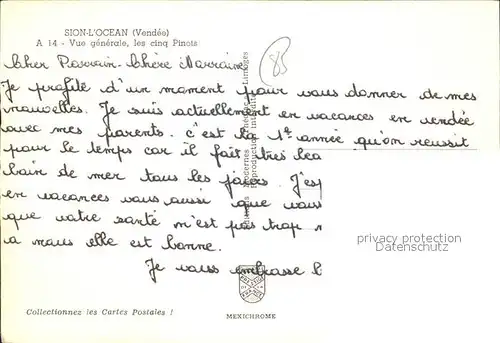 SION-L'OCEAN (Vendée)
A 14 - Vue générale, les cinq Pinots
85
Cher Parrain - Chère Marraine
Je profite d'un moment pour vous donner de mes
nouvelles. Je suis actuellement en vacances en vendée
avec mes parents. c'est la 1re année qu'on reussit
pour le temps car il fait très bea
bain de mer tous les jours. J'esp
en vacances vous aussi que vous
que votre santé n'est pas trop m
a nous elle est bonne.
Je vous embrasse b
Modernes
Limoges
Reproduction interdite
privacy protection by
Datenschutz
Collectionnez les Cartes Postales !
MEXICHROME